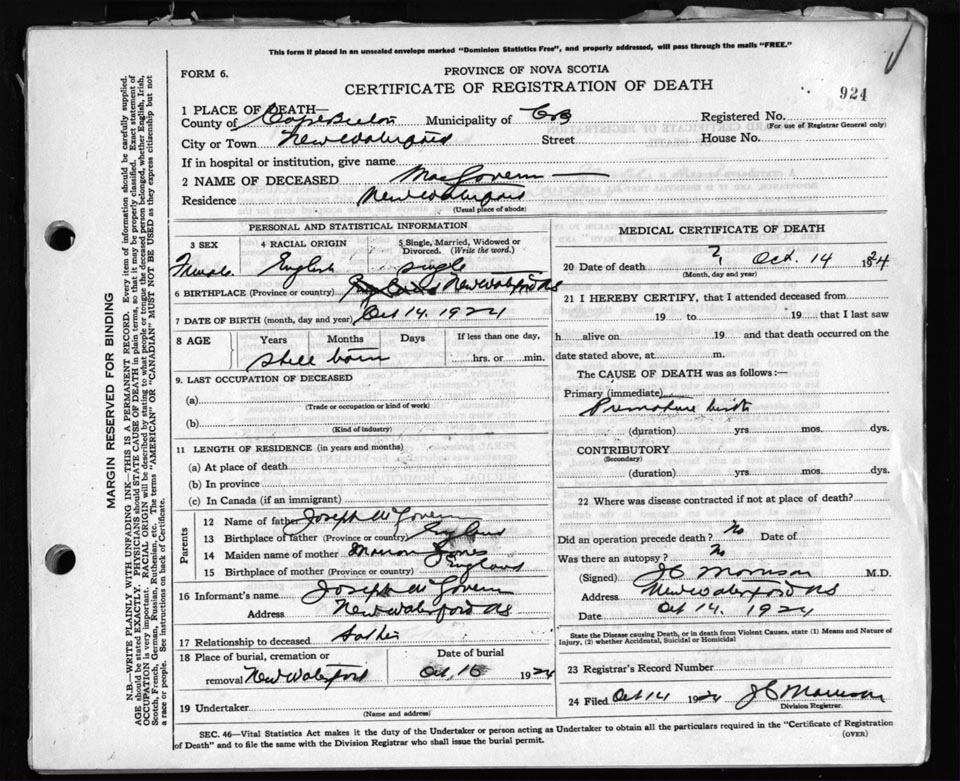 This form if placed in an unsealed envelope marked "Dominion Statistics Free", and properly addressed, will pass through the mails "FREE."
FORM 6.
PROVINCE OF NOVA SCOTIA
CERTIFICATE OF REGISTRATION OF DEATH
924
1 PLACE OF DEATH—
County of Cape Breton Municipality of CB Registered No.
(For use of Registrar General only)
City or Town New Waterford Street House No.
If in hospital or institution, give name
2 NAME OF DECEASED MacGovern —
Residence New Waterford
(Usual place of abode)
PERSONAL AND STATISTICAL INFORMATION
3 SEX 4 RACIAL ORIGIN 5 Single, Married, Widowed or Divorced. (Write the word.)
Female English Single
6 BIRTHPLACE (Province or country) New Waterford NS
7 DATE OF BIRTH (month, day and year) Oct 14. 1924
8 AGE Years Months Days If less than one day,
Still born hrs. or min.
9. LAST OCCUPATION OF DECEASED
(a)
(Trade or occupation or kind of work)
(b)
(Kind of industry)
11 LENGTH OF RESIDENCE (in years and months)
(a) At place of death
(b) In province
(c) In Canada (if an immigrant)
Parents
12 Name of father Joseph McGovern
13 Birthplace of father (Province or country) England
14 Maiden name of mother Marion Jones
15 Birthplace of mother (Province or country) England
16 Informant's name Joseph McGovern
Address New Waterford NS
17 Relationship to deceased father
18 Place of burial, cremation or Date of burial
removal New Waterford Oct, 15 1924
19 Undertaker
(Name and address)
MEDICAL CERTIFICATE OF DEATH
20 Date of death ? Oct. 14 1924
(Month, day and year)
21 I HEREBY CERTIFY, that I attended deceased from
19 to 19 that I last saw
h alive on 19 and that death occurred on the
date stated above, at m.
The CAUSE OF DEATH was as follows:—
Primary (immediate)
Premature birth
(duration) yrs. mos. dys.
CONTRIBUTORY
(Secondary)
(duration) yrs. mos. dys.
22 Where was disease contracted if not at place of death?
Did an operation precede death? No Date of
Was there an autopsy? No
(Signed) J C Morrison M.D.
Address New Waterford NS
Date Oct 14. 1924
State the Disease causing Death, or in death from Violent Causes, state (1) Means and Nature of
Injury, (2) whether Accidental, Suicidal or Homicidal
23 Registrar's Record Number
24 Filed Oct 14 1924 J C Morrison
Division Registrar.
SEC. 46—Vital Statistics Act makes it the duty of the Undertaker or person acting as Undertaker to obtain all the particulars required in the "Certificate of Registration
of Death" and to file the same with the Division Registrar who shall issue the burial permit.
(OVER)
MARGIN RESERVED FOR BINDING
N.B.—WRITE PLAINLY WITH UNFADING INK—THIS IS A PERMANENT RECORD. Every item of information should be carefully supplied.
AGE should be stated EXACTLY. PHYSICIANS should STATE CAUSE OF DEATH in plain terms, so that it may be properly classified. Exact statement of
OCCUPATION is very important. RACIAL ORIGIN will be described by stating to what people or tongue the deceased person belonged, whether English, Irish,
Scotch, French, German, Russian, Ruthenian, etc. The terms "AMERICAN" OR "CANADIAN" MUST NOT BE USED as they express citizenship but not
a race or people. See instructions on back of Certificate.